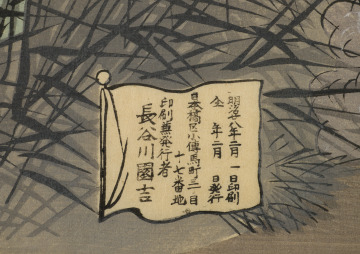 明治廿八年二月一日印刷
仝年二月 日発行
日本橋區小傳馬町三丁目
十七番地
印刷兼発行者
長谷川國吉